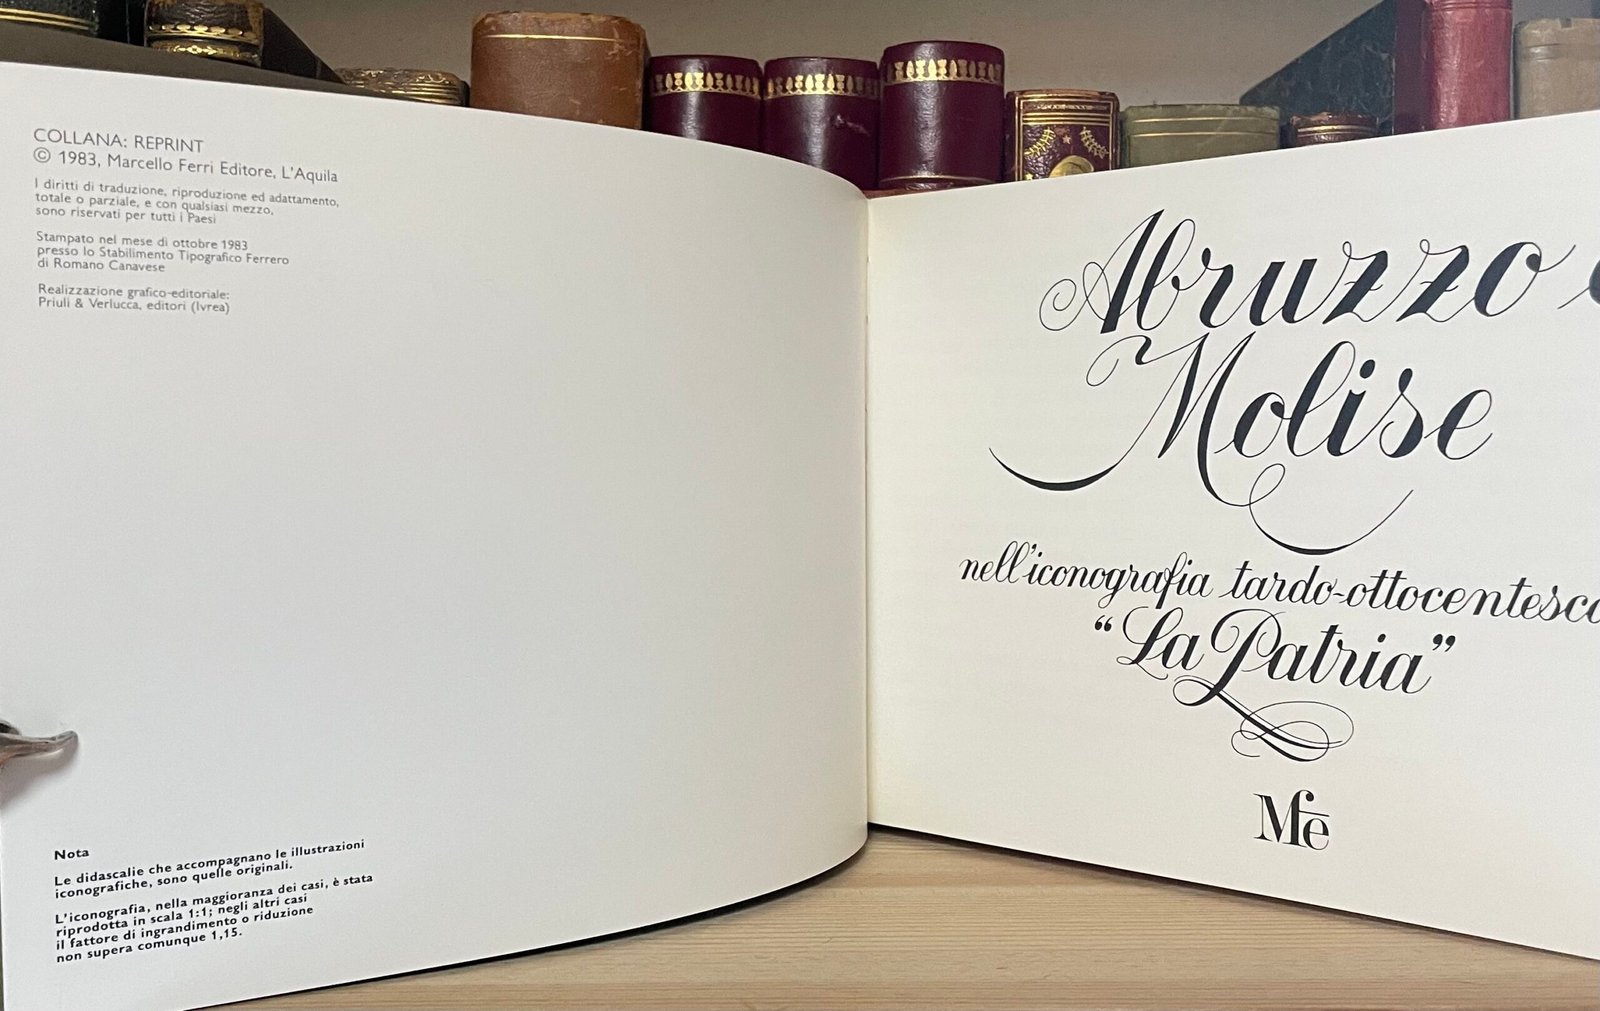 COLLANA: REPRINT
© 1983, Marcello Ferri Editore, L'Aquila
I diritti di traduzione, riproduzione ed adattamento,
totale o parziale, e con qualsiasi mezzo,
sono riservati per tutti i Paesi
Stampato nel mese di ottobre 1983
presso lo Stabilimento Tipografico Ferrero
di Romano Canavese
Realizzazione grafico-editoriale:
Priuli & Verlucca, editori (Ivrea)
Nota
Le didascalie che accompagnano le illustrazioni
iconografiche, sono quelle originali.
L'iconografia, nella maggioranza dei casi, è stata
riprodotta in scala 1:1; negli altri casi
il fattore di ingrandimento o riduzione
non supera comunque 1,15.
Abruzzo
Molise
nell'iconografia tardo-ottocentesca
"La Patria"
Mfe